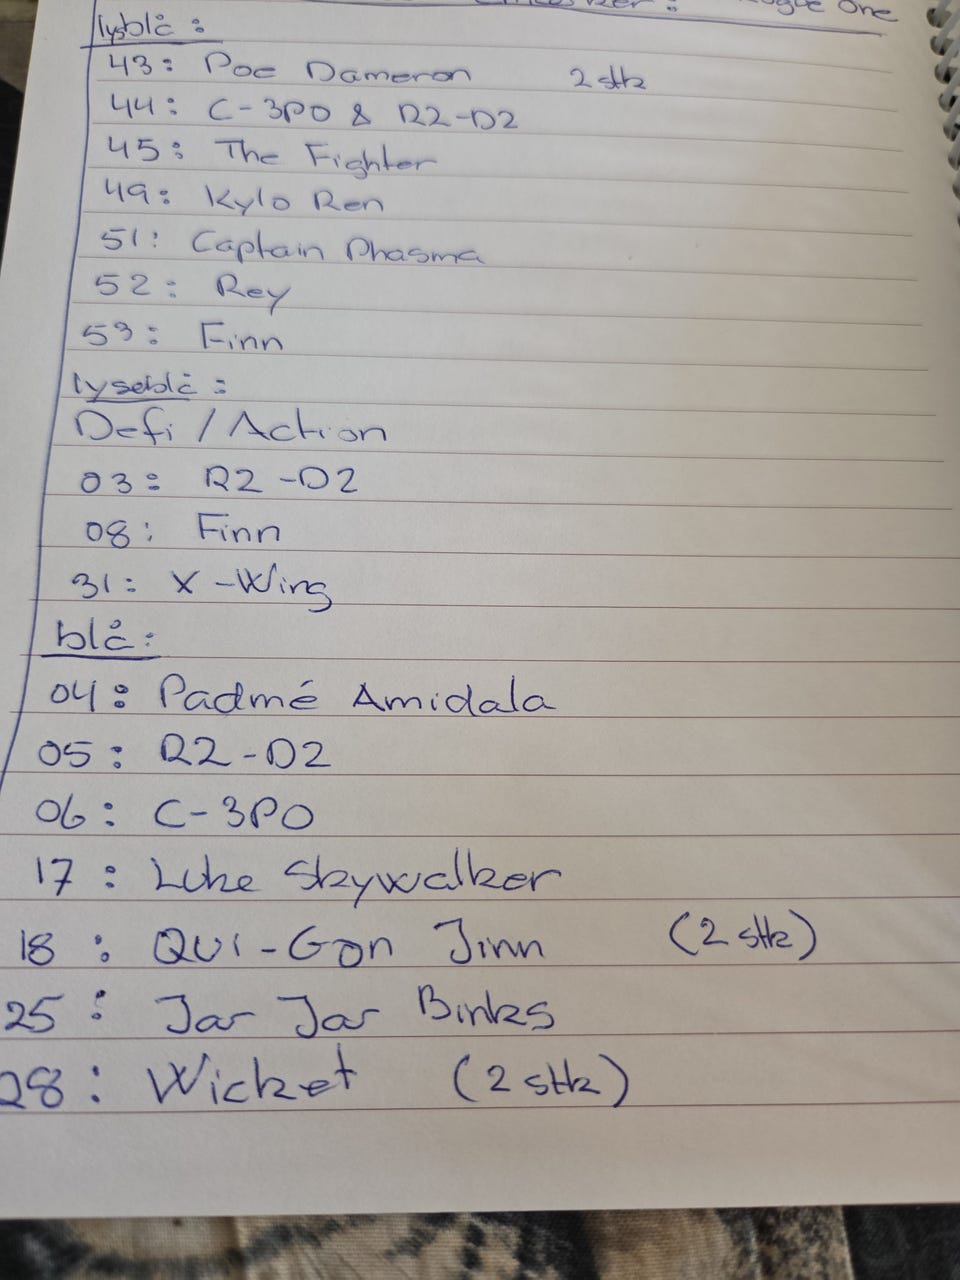 Rogue One
lysblå :
43: Poe Dameron 2 stk
44: C-3PO & R2-D2
45: The Fighter
49: Kylo Ren
51: Captain Phasma
52: Rey
53: Finn
lyseblå :
Defi / Action
03: R2-D2
08: Finn
31: X-Wing
blå:
04: Padmé Amidala
05: R2-D2
06: C-3PO
17: Luke Skywalker
18: Qui-Gon Jinn (2 stk)
25: Jar Jar Binks
28: Wicket (2 stk)